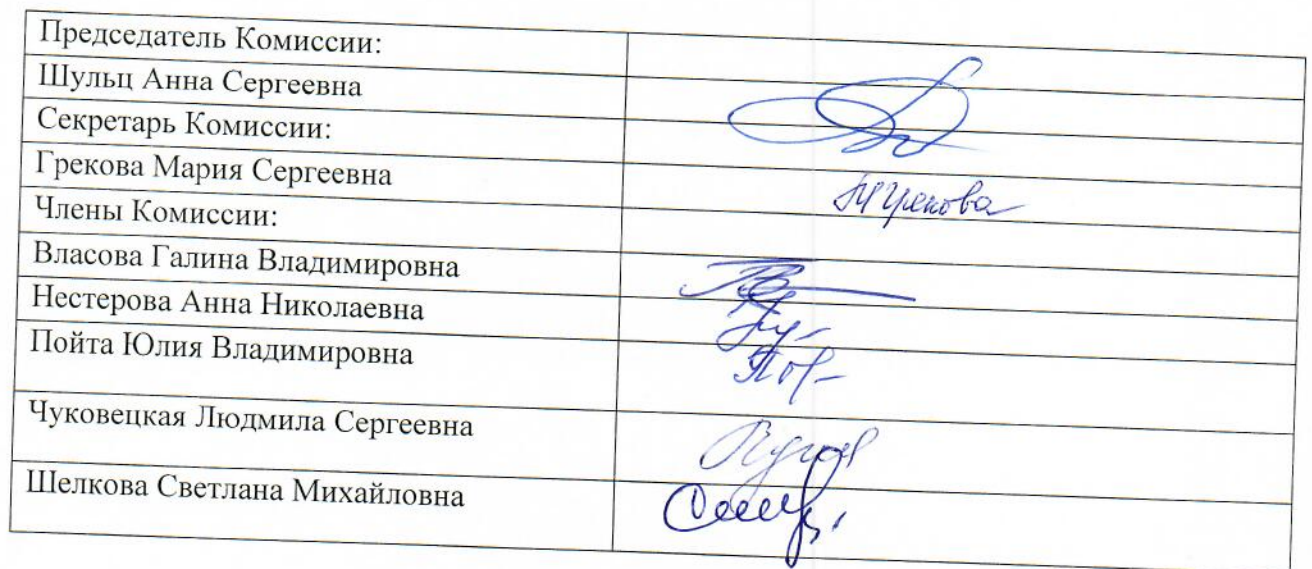 Председатель Комиссии:
Шульц Анна Сергеевна
Секретарь Комиссии:
Грекова Мария Сергеевна
Грекова
Члены Комиссии:
Власова Галина Владимировна
Нестерова Анна Николаевна
Пойта Юлия Владимировна
Чуковецкая Людмила Сергеевна
Шелкова Светлана Михайловна